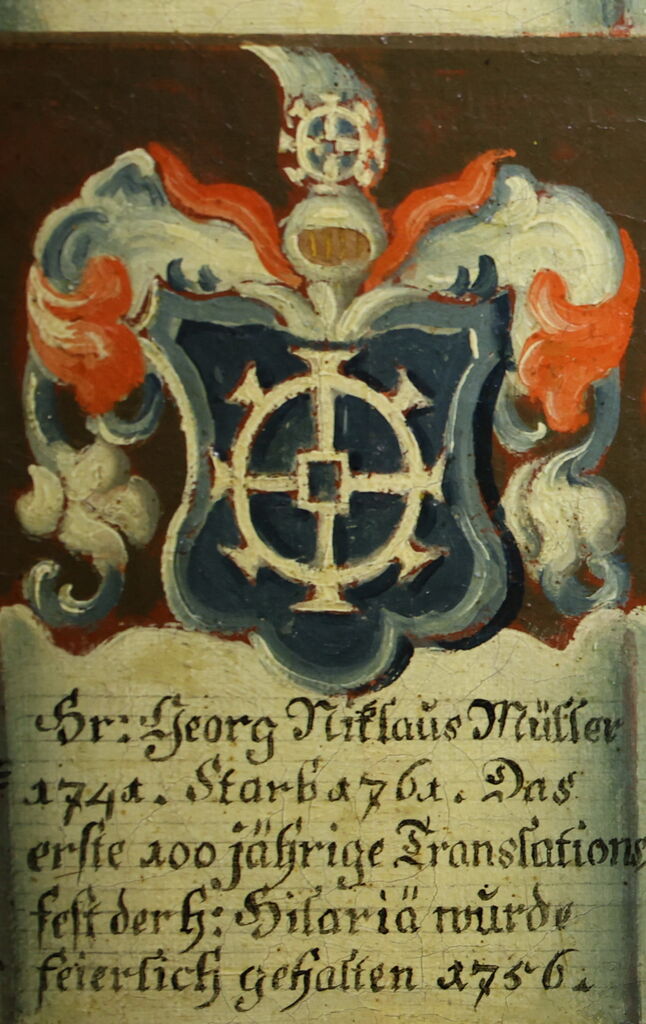 Hr: Georg Niklaus Müller
1741. Starb 1761. Das
erste 100 jährige Translations
fest der h: Hilariä wurde
feierlich gehalten 1756.